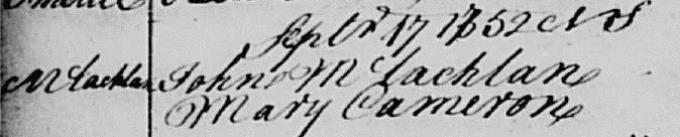 Septr 17 1752 N S
McLachlan John McLachlan
Mary Cameron